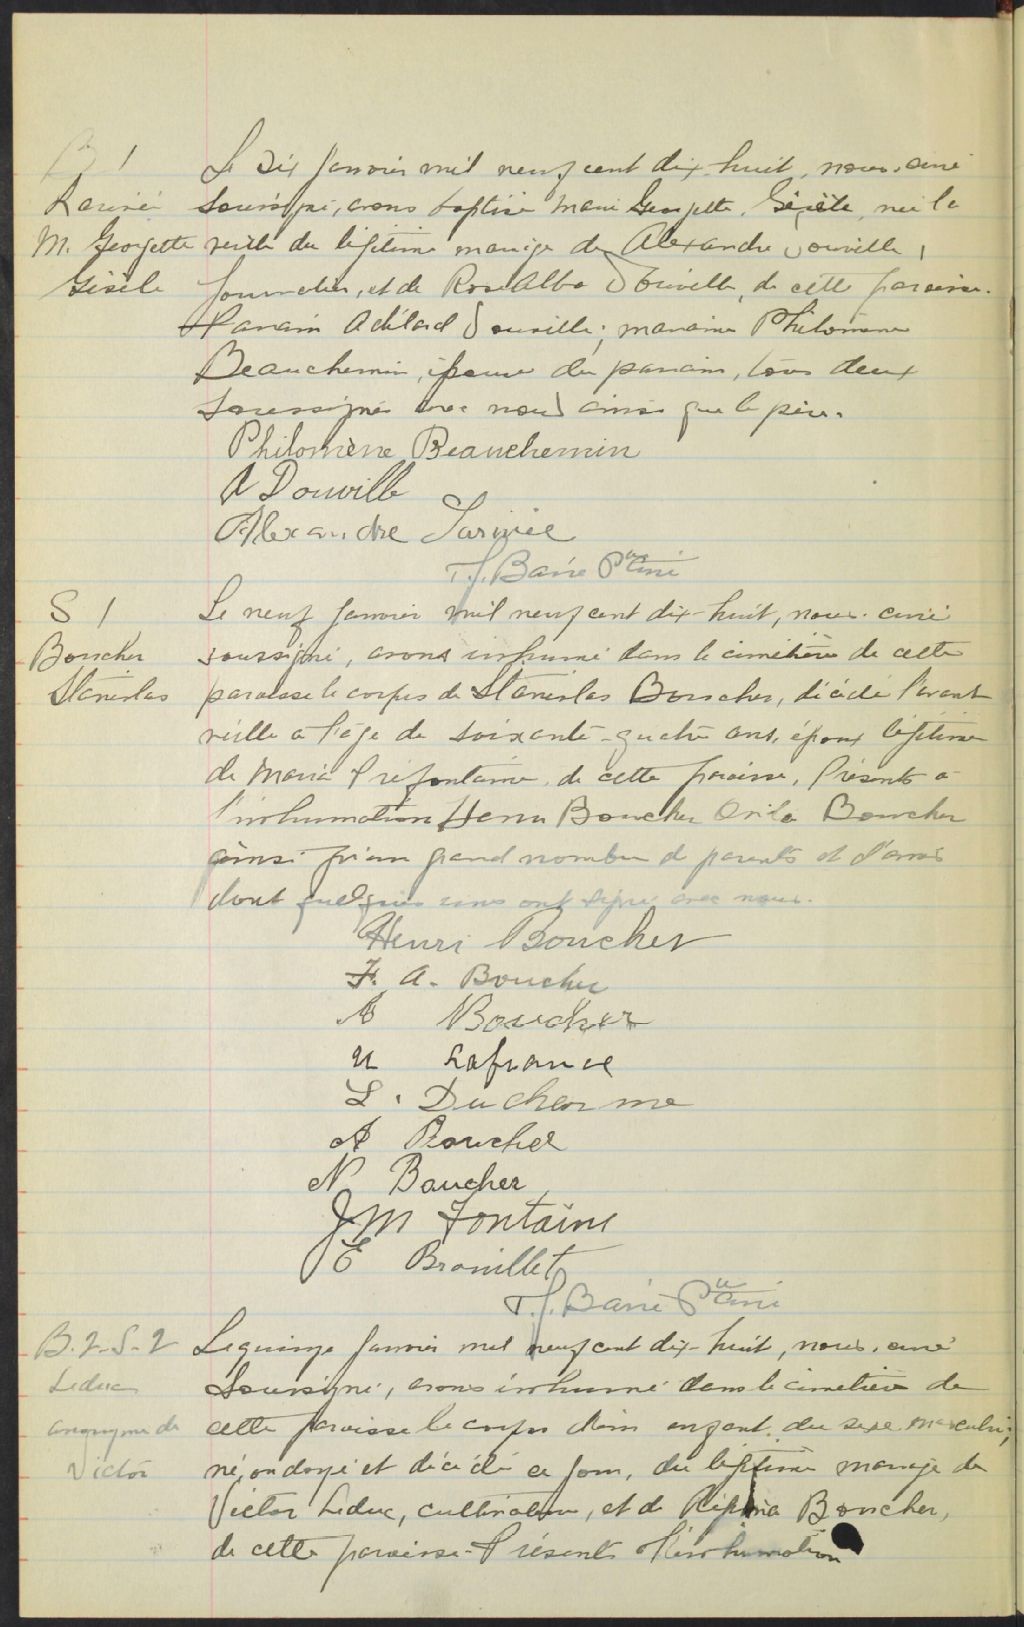 B 1
Larivée
M. Georgette
Gisèle
Le six Janvier mil neuf cent dix-huit, nous, curé
soussigné, avons baptisé Marie Georgette, Gisèle, née la
veille du légitime mariage de Alexandre
et de Rose Alba Douville, de cette paroisse.
Parrain Adélard Douville; marraine Philomène
Beauchemin, épouse du parrain, tous deux
soussignés avec nous ainsi que le père.
Philomène Beauchemin
A Douville
Alexandre Larivée
T. J. Barré Ptre curé
S 1
Boucher
Stanislas
Le neuf Janvier mil neuf cent dix-huit, nous, curé
soussigné, avons inhumé dans le cimetière de cette
paroisse le corps de Stanislas Boucher, décédé l'avant
veille à l'âge de soixante-quatre ans, époux légitime
de Maria Préfontaine, de cette paroisse, Présents à
l'inhumation Henri Boucher Orila Boucher
ainsi qu'un grand nombre de parents et d'amis
dont quelques uns ont signé avec nous.
Henri Boucher
F. A. Boucher
A Boucher
U Lafrance
L. Ducharme
A Boucher
N Boucher
J M Fontaine
E Brouillet
T. J. Barré Ptre curé
B. 2 - S - 2
Leduc
anonyme de
Victor
Le quinze Janvier mil neuf cent dix-huit, nous, curé
soussigné, avons inhumé dans le cimetière de
cette paroisse le corps d'un enfant du sexe masculin,
né, ondoyé et décédé ce jour, du légitime mariage de
Victor Leduc, cultivateur, et de Boucher,
de cette paroisse. Présents à l'inhumation